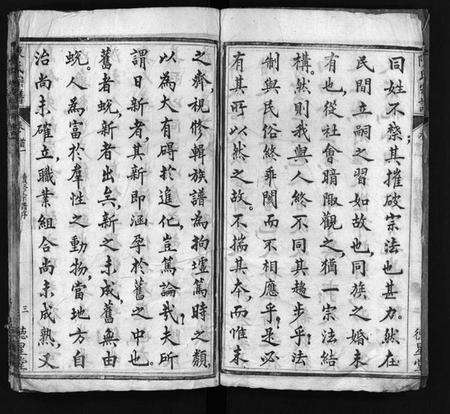 同姓不禁其摧破宗法也甚力然在
民間立嗣之習如故也同族之婚未
有也從社會暗陬觀之猶一宗法結
構然則我與人終不同其趨步乎法
制與民俗終乖閡而不相應乎是必
有其所以然之故不揣其本而惟末
之齊視修輯族譜為拘墟篤時之纇
以為大有碍於進化豈篤論哉夫所
謂日新者其新即涵孕於舊之中也
舊者蛻新者出矣新之未成舊無由
蛻人為富於羣性之動物當地方自
治尚未確立職業組合尚未成熟又
三
德星堂
德星堂